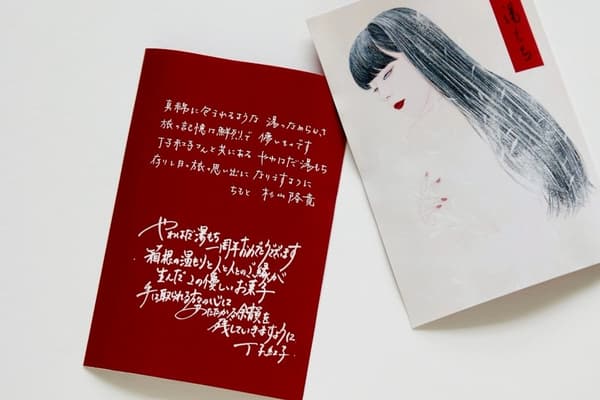 湯もち
真綿に包まれるような 湯のなめらかさ
旅の記憶は鮮烈で 儚いものです
丁子紅子さんと共にある やわはだ湯もち
在りし日の旅の思い出に なりますように
ちもと 杉山隆
やわはだ湯もち
一周年おめでとうございます
箱根の温もりと人と人とのご縁が
生んだこの優しいお菓子
手に取られる の心に
あたたかな余韻を
残していきますように
丁子紅子